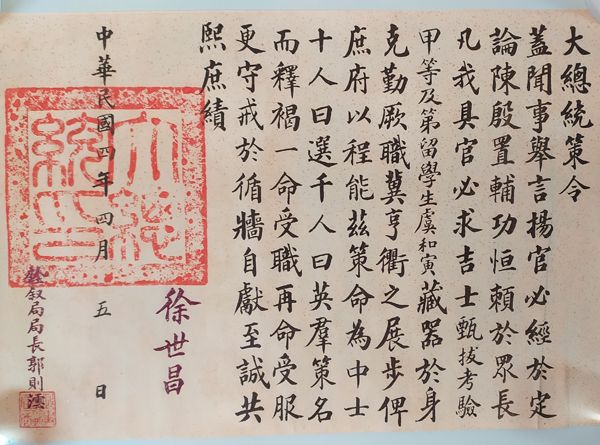 大總統策令
蓋聞事舉言揚官必經於定
論陳殷置輔功恒賴於眾長
凡我具官必求吉士甄拔考驗
甲等及第留學生虞和寅藏器於身
克勤厥職冀亨衢之展步俾
庶府以程能茲策命為中士
十人曰選千人曰英羣策名
而釋褐一命受職再命受服
更守戒於循牆自獻至誠共
熙庶績
徐世昌
中華民國四年四月五日
大總統印
銓叙局局長郭則澐